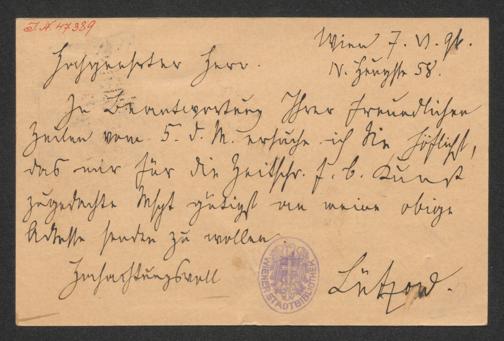 J. N. 47389
Wien 7. VI. 94.
Hochgeehrter Herr.
IV. Heugasse 58.
In Beantwortung Ihrer freundlichen
Zeilen vom 5. d. M. ersuche ich Sie höflichst,
das mir für die Zeitschr. f. b. Kunst
zugedachte Mspt gütigst an meine obige
Adresse senden zu wollen.
Hochachtungsvoll
Lützow.
WIENER STADTBIBLIOTHEK